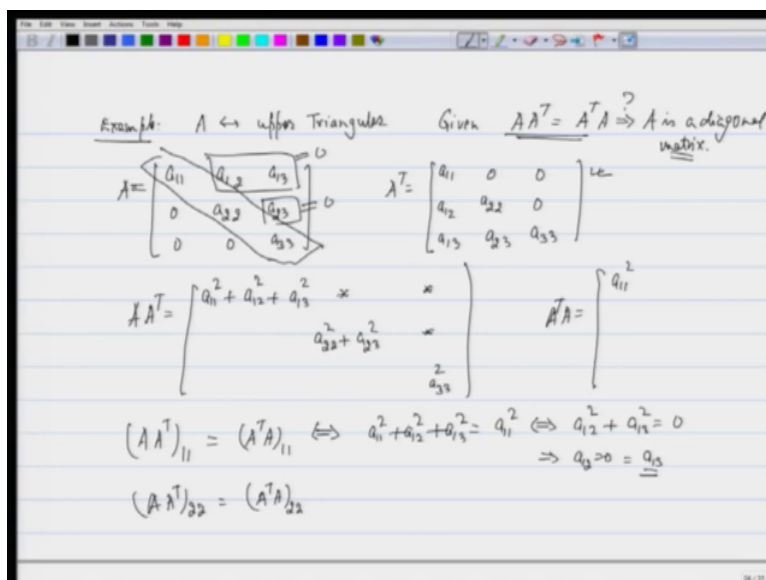 File Edit View Insert Actions Tools Help
Example: A ↔ upper Triangular Given AAᵀ = AᵀA ⇒? A is a diagonal matrix.
A = [a₁₁ a₁₂ a₁₃ = 0
0 a₂₂ a₂₃ = 0
0 0 a₃₃]
Aᵀ = [a₁₁ 0 0
a₁₂ a₂₂ 0
a₁₃ a₂₃ a₃₃]
AAᵀ = [a₁₁² + a₁₂² + a₁₃² * *
a₂₂² + a₂₃² *
a₃₃²]
AᵀA = [a₁₁²
(AAᵀ)₁₁ = (AᵀA)₁₁ ⇔ a₁₁² + a₁₂² + a₁₃² = a₁₁² ⇔ a₁₂² + a₁₃² = 0
⇒ a₁₂ = 0 = a₁₃
(AAᵀ)₂₂ = (AᵀA)₂₂